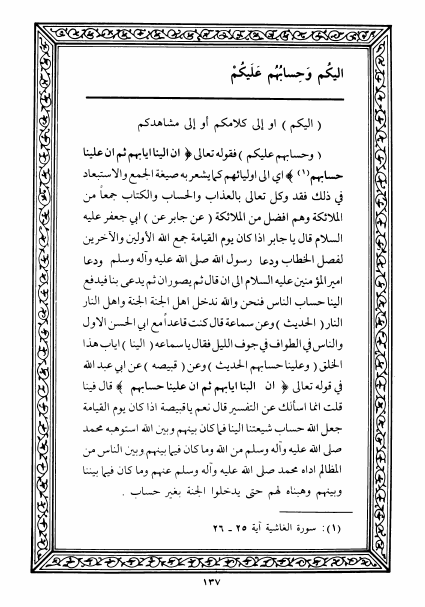 اليكُم وَحِسابُهُم عَلَيكُمْ
( اليكم ) او إلى كلامكم أو إلى مشاهدكم
( وحسابهم عليكم ) فقوله تعالى ﴿ ان الينا ايابهم ثم ان علينا
حسابهم (١) ﴾ اي الى اوليائهم كما يشعر به صيغة الجمع والاستبعاد
في ذلك فقد وكل تعالى بالعذاب والحساب والكتاب جمعاً من
الملائكة وهم افضل من الملائكة ( عن جابر عن ) ابي جعفر عليه
السلام قال يا جابر اذا كان يوم القيامة جمع الله الأولين والآخرين
لفصل الخطاب ودعا رسول الله صلى الله عليه وآله وسلم ودعا
امير المؤمنين عليه السلام الى ان قال ثم يصوران ثم يدعى بنا فيدفع
الينا حساب الناس فنحن والله ندخل اهل الجنة الجنة واهل النار
النار ( الحديث ) وعن سماعة قال كنت قاعداً مع ابي الحسن الاول
والناس في الطواف في جوف الليل فقال يا سماعه ( الينا ) اياب هذا
الخلق ( وعلينا حسابهم الحديث ) وعن ( قبيصه ) عن ابي عبد الله
في قوله تعالى ﴿ ان الينا ايابهم ثم ان علينا حسابهم ﴾ قال فينا
قلت انما اسألك عن التفسير قال نعم يا قبيصة اذا كان يوم القيامة
جعل الله حساب شيعتنا الينا فما كان بينهم وبين الله استوهبه محمد
صلى الله عليه وآله وسلم من الله وما كان فيما بينهم وبين الناس من
المظالم اداه محمد صلى الله عليه وآله وسلم عنهم وما كان فيما بيننا
وبينهم وهبناه لهم حتى يدخلوا الجنة بغير حساب .
(١): سورة الغاشية آية ٢٥ ـ ٢٦
١٣٧